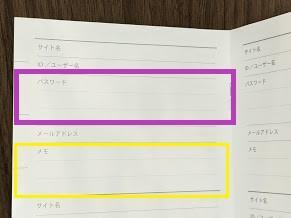 サイト名
ID／ユーザー名
パスワード
メールアドレス
メモ
サイト名
サイト名
ID／ユーザー名
パスワード
メールアドレス
メモ
サイト名